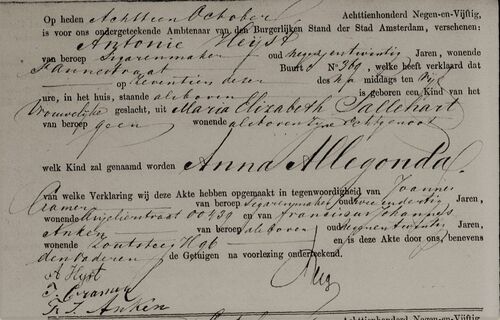 Op heden Achttien October Achttienhonderd Negen-en-Vijftig,
is voor ons ondergeteekende Ambtenaar van den Burgerlijken Stand der Stad Amsterdam, verschenen:
Antonie Heijst
van beroep Sigarenmaker oud negenentwintig Jaren, wonende
Buurt No 369, welke heeft verklaard dat
op Zeventien dezer des na middags ten
ure, in het huis, staande alsboven is geboren een Kind van het
Vrouwelijke geslacht, uit Maria Elizabeth
van beroep geen wonende alsboven zijne Echtgenoot
welk Kind zal genaamd worden Anna Allegonda
van welke Verklaring wij deze Akte hebben opgemaakt in tegenwoordigheid van Joannes
Cramer van beroep Sigarenmaker oud Jaren,
wonende en van Franciscus Johannes
Anken van beroep alsboven oud Jaren,
wonende Zoutsteeg H 96 en is deze Akte door ons, benevens
den vaderen de Getuigen na voorlezing onderteekend.
A Hijst
J. Cramer
F. J. Anken
Achttienhonderd Negen-en-Vijftig